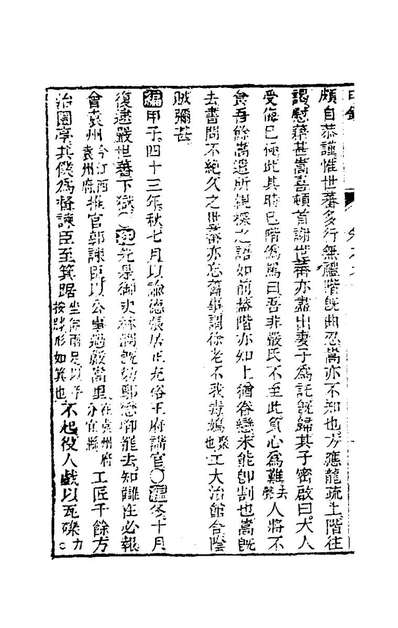 頗自恭謹惟世蕃多行無禮階旣曲忍嵩亦不知也方應龍疏上階往
謁慰藉甚嵩喜頓首謝世蕃亦盡出妻子為託旣歸其子密啟曰大人
受侮已極此其時已階為罵曰吾非嚴氏不至此負心為難去聲人將不
食吾餘嵩遣所親探之語如前蓋階亦知上猶眷戀未能即割也嵩旣
去書問不絕久之世蕃亦忘舊事謂徐老不我毒鴆也聚工大治館舍陰
賊彌甚
編甲子四十三年秋七月以諭德張居正充裕王府講官○編冬十月
復逮嚴世蕃下獄紀先是御史林潤旣劾鄢懋卿罷去知讎在必報
會袁州今江西袁州府推官郭諫臣以公事過嚴嵩里在袁州府分宜縣工匠千餘方
治園亭其僕為督諫臣至箕踞坐伸兩足以手按膝形如箕也不起役人戲以瓦礫力